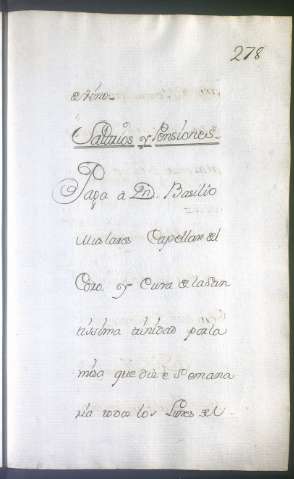 278
Salarios y Pensiones
Paga a Dn. Basilio
Capellan del
Coro y Cura de la San
tissima trinidad por la
misa que dize Semana
ria todos los Lunes del